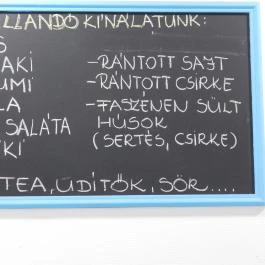 LLANDÓ KÍNÁLATUNK:
S
AKI -RÁNTOTT SAJT
UMI -RÁNTOTT CSIRKE
LA -FASZÉNEN SÜLT
SALÁTA HÚSOK
KI (SERTÉS, CSIRKE)
TEA, ÜDÍTŐK, SÖR....